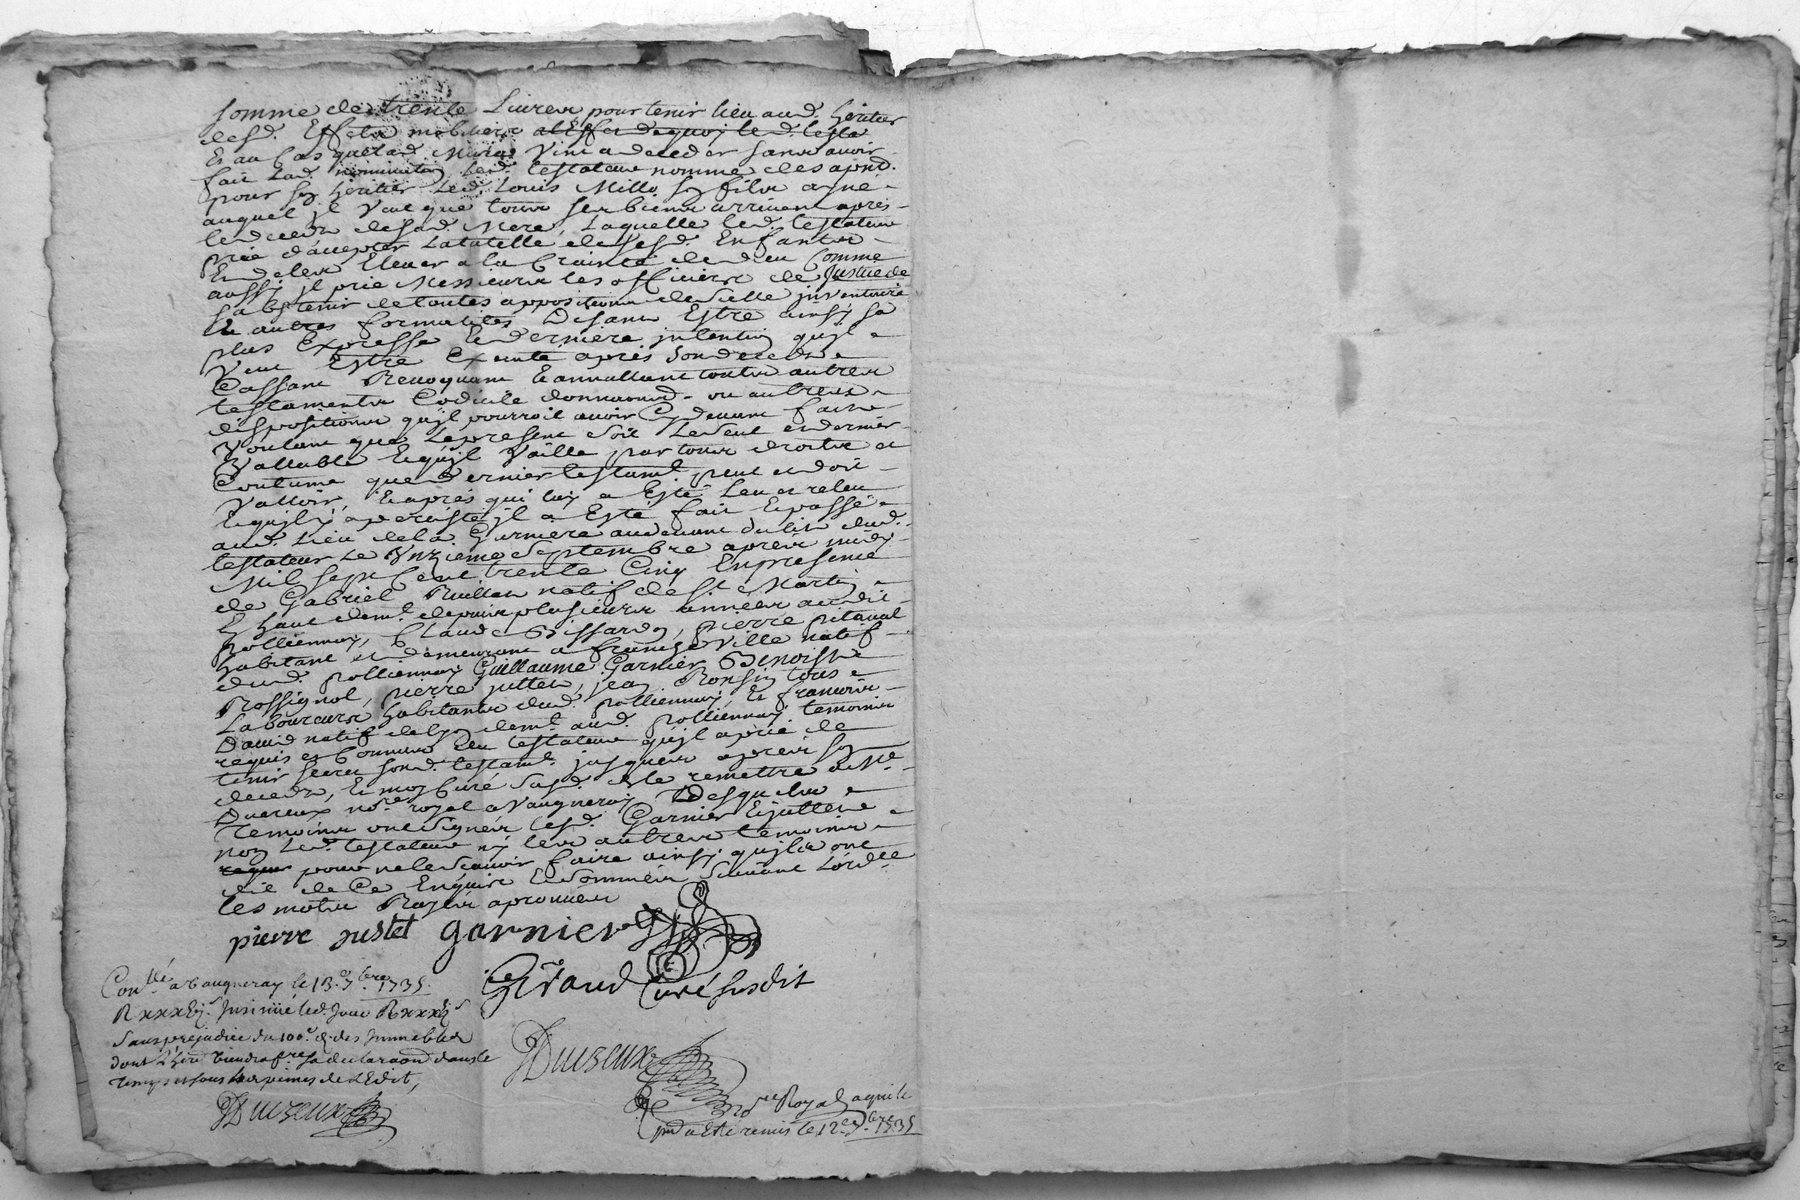 somme de trente Livres pour tenir lieu aud. heritier
desd. Effets mobiliers al Effet dequoy led. testa
Et au Cas que lad. Miere Vint a deceder sans avoir
fait lad. nomination led. testateur nomme des apnt.
pour son heritier led. Louis Millo son fils ayné
auquel il Veut que tous ses biens arrivent apres
le deceds de sad. Mere, Laquelle led. testateur
prie d'accepter La tutelle de sesd. Enfants
Et de les Elever a la Crainte de dieu Comme
aussy il prie Messieurs les officiers de Justice de
s'abstenir de toutes appositions de scelle inventaire
Et autres formalités Disant Estre ainsy sa
plus Expresse Et derniere intention qu'il
Veut Estre Executé apres son deceds
Cassant Revoquant Et annullant toutes autres
testaments Codicile donnaond. ou autres
dispositions qu'il pourroit avoir Cy devant faites
Voulant que Le present soit Le seul et dernier
Vallable Et qu'il Vaille par tous droits et
Coutume que dernier testamt. peut et doit
Valloir, Et apres qui luy a Esté Leu et releu
Et qu'il y a persisté il a Esté fait Et passé
aud. Lieu de la Gurniere au devant du lit dud.
testateur Le Unzieme Septembre apres midy
Mil sept Cent trente Cinq En presence
de Gabriel Rullat natif de St. Martin
En haut demt. depuis plusieurs années audit
pollionnay, Claude Bissardon, pierre pitaval
habitant et demeurant a francheville natif
dud. pollionnay Guillaume Garnier Benoist
Rossignol, pierre jullet, jean Ronsin tous
Laboureurs habitants dud. pollionnay, Et francois
David natif de Lyon demt. aud. pollionnay temoins
requis et Connus du testateur qu'il a prié de
tenir secret sond. testamt. jusques apres son
deceds, Et moy Curé susd. de le remettre a Me.
Duereux nore. royal a Vaugneray Desquels
Temoins ont signés lesd. Garnier Et jullet
non Led. testateur ny les autres temoins
requis pour ne le scavoir faire ainsy qu'ils ont
dit de Ce Enquis Et sommés suivant L'ordce.
les mots Rayés aprouvés
pierre justet garnier
Giraud Curé susdit
Conllé. a Vaugneray le 13. 7bre. 1735.
R xxxxij s. Insinué led. Jour R xxxij s
Sans prejudice du 100e. d. des Immeubles
dont L'here. tiendra fre. sa declaraon dans le
Temps et sous les peines de L'Edit,
Duereux
Duereux
nore. Royal a qui le
pnt. a Eté remis le 12e. 7bre. 1735